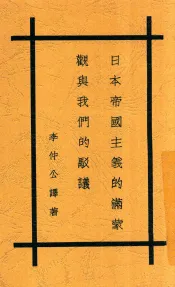 日本帝國主義的滿蒙
觀與我們的駁議
李仲公譯著